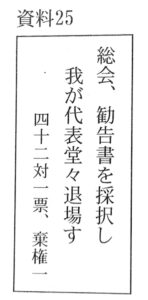 資料25
総会、勧告書を採択し
我が代表堂々退場す
四十二対一票、棄権一